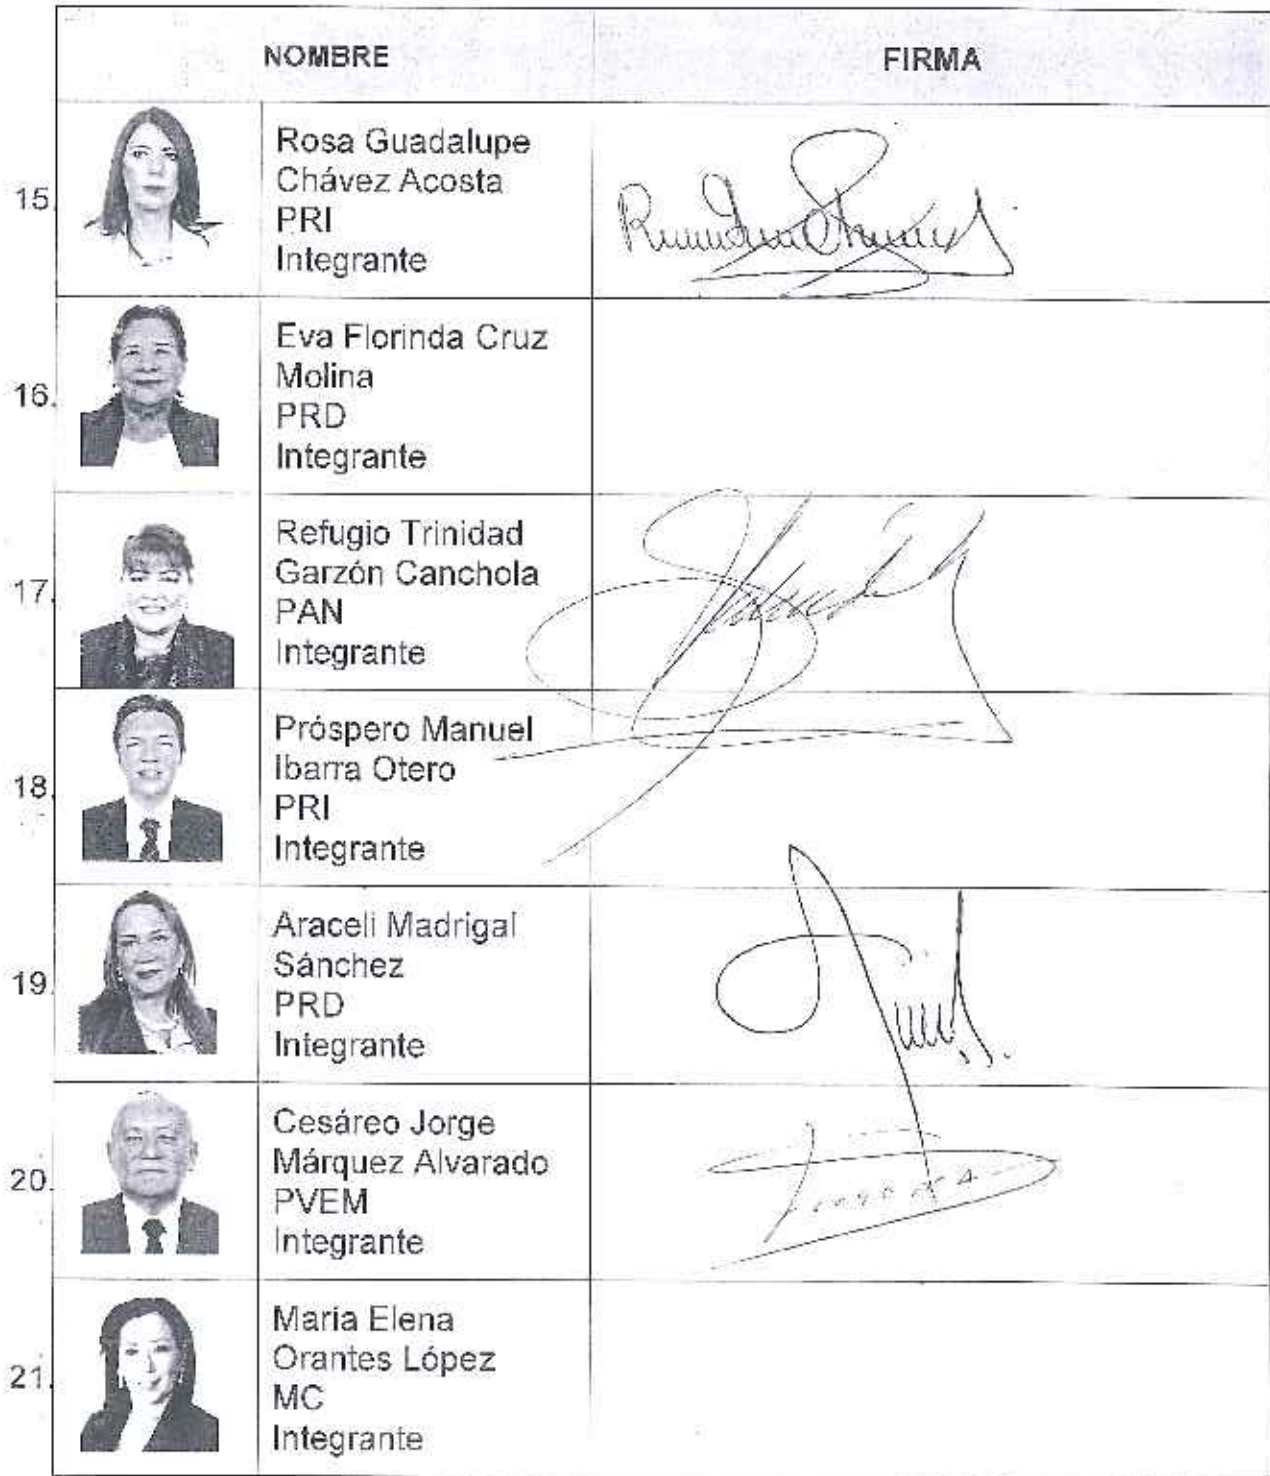 NOMBRE FIRMA
15. Rosa Guadalupe
Chávez Acosta
PRI
Integrante
16. Eva Florinda Cruz
Molina
PRD
Integrante
17. Refugio Trinidad
Garzón Canchola
PAN
Integrante
18. Próspero Manuel
Ibarra Otero
PRI
Integrante
19. Araceli Madrigal
Sánchez
PRD
Integrante
20. Cesáreo Jorge
Márquez Alvarado
PVEM
Integrante
21. María Elena
Orantes López
MC
Integrante